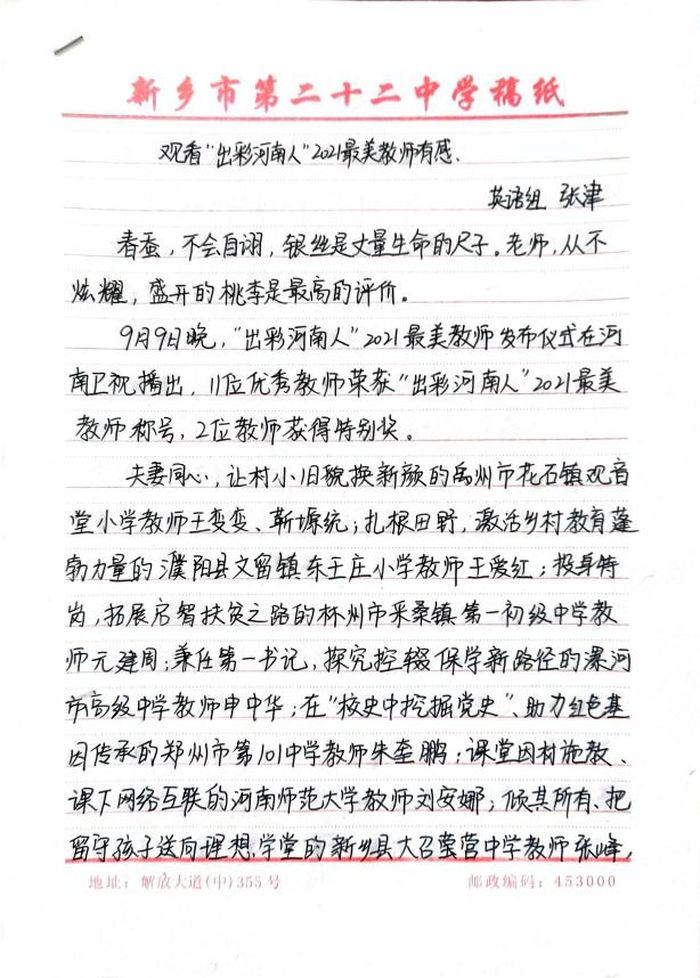 新乡市第二十二中学稿纸
观看“出彩河南人”2021最美教师有感、
英语组 张津
春蚕，不会自诩，银丝是丈量生命的尺子。老师，从不
炫耀，盛开的桃李是最高的评价。
9月9日晚，“出彩河南人”2021最美教师发布仪式在河
南卫视播出，11位优秀教师荣获“出彩河南人”2021最美
教师称号，2位教师获得特别奖。
夫妻同心，让村小旧貌换新颜的禹州市花石镇观音
堂小学教师王变变、靳塬统；扎根田野，激活乡村教育蓬
勃力量的濮阳县文留镇东王庄小学教师王爱红；投身特
岗，拓展启智扶贫之路的林州市采桑镇第一初级中学教
师元建周；兼任第一书记，探究控辍保学新路径的漯河
市高级中学教师申中华；在“校史中挖掘党史”、助力红色基
因传承的郑州市第101中学教师朱奎鹏；课堂因材施教、
课下网络互联的河南师范大学教师刘安娜；倾其所有、把
留守孩子送向理想、学堂的新乡县大召营中学教师张峰，
地址：解放大道(中)355号
邮政编码：453000